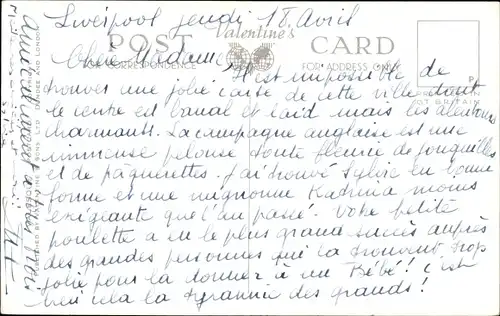 Liverpool jeudi 18 Avril
POST Valentine's CARD
FOR CORRESPONDENCE FOR ADDRESS ONLY
Chère Madame
Il est impossible de
trouver une jolie carte de cette ville dont
le centre est banal et laid mais les alentours
charmants. La campagne anglaise est une
immense pelouse toute fleurie de jonquilles
et de paquerettes. J'ai trouvé Sylvie en bonne
forme et une mignonne Katrina moins
exigeante que l'an passé. Votre petite
poulette a eu le plus grand succès auprès
des grandes personnes qui la trouvent trop
jolie pour la donner à un Bébé! C'est
bien cela la tyrannie des grands!